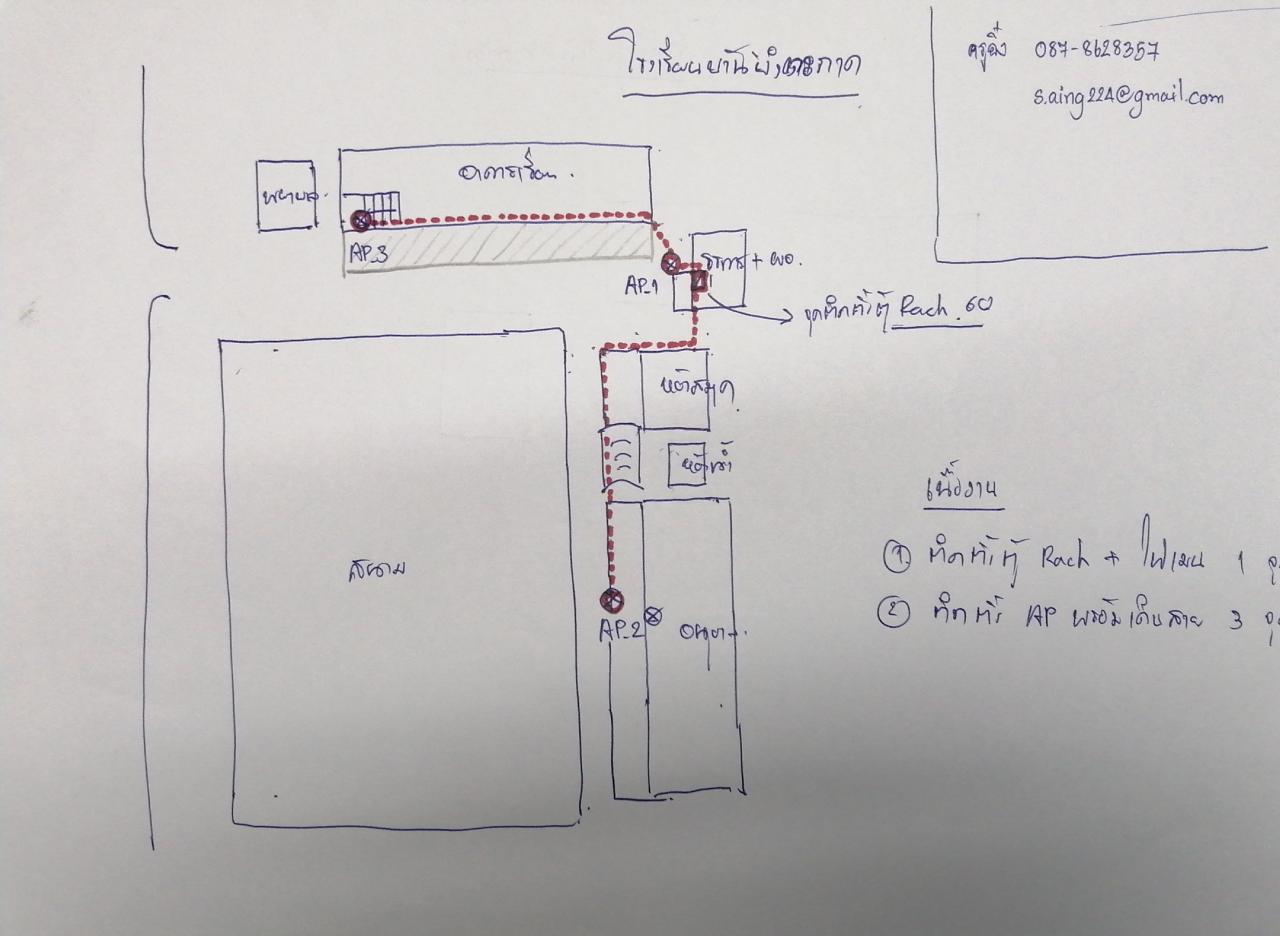 โรงเรียนบ้าน
ครูอิ๋ง 087-8628357
s.aing224@gmail.com
อาคารเรียน.
พยาบาล.
AP.3
ธุรการ + ผอ.
AP.1
จุดติดตั้งตู้ Rach 6U
ห้องสมุด
ห้องน้ำ
สนาม
AP.2
อนุบาล.
เนื้องาน
① ติดตั้งตู้ Rach + ไฟเมน 1
② ติดตั้ง AP พร้อมเดินสาย 3